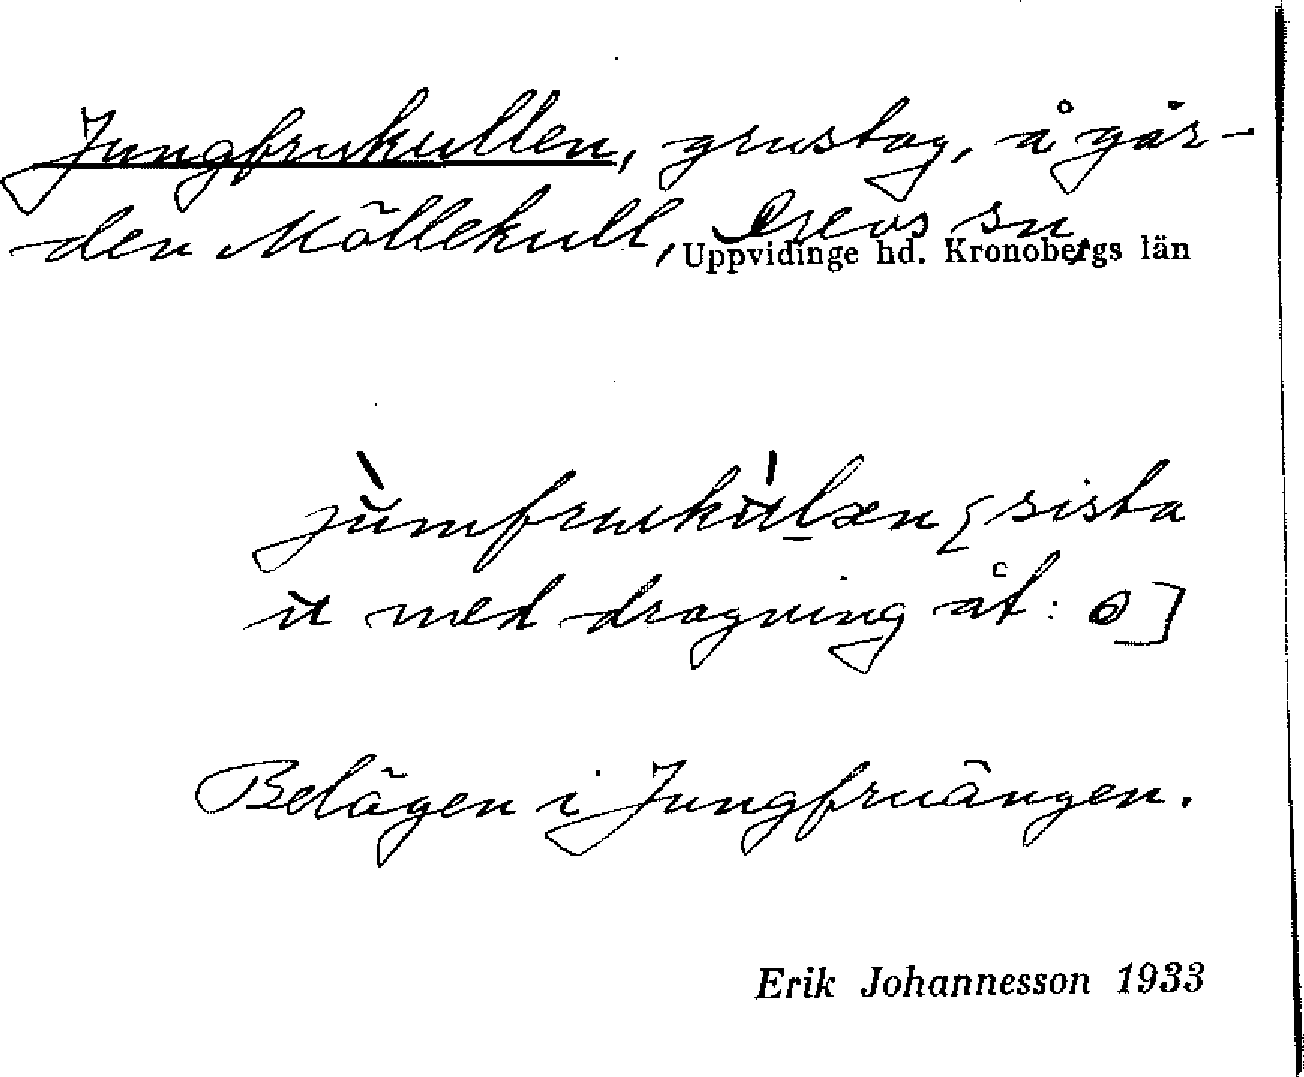 Jungfrukullen, grustag, å går-
den Möllekull, Drevs sn,
Uppvidinge hd. Kronobergs län
sista
u med dragning åt: o]
Belägen i Jungfruängen.
Erik Johannesson 1933